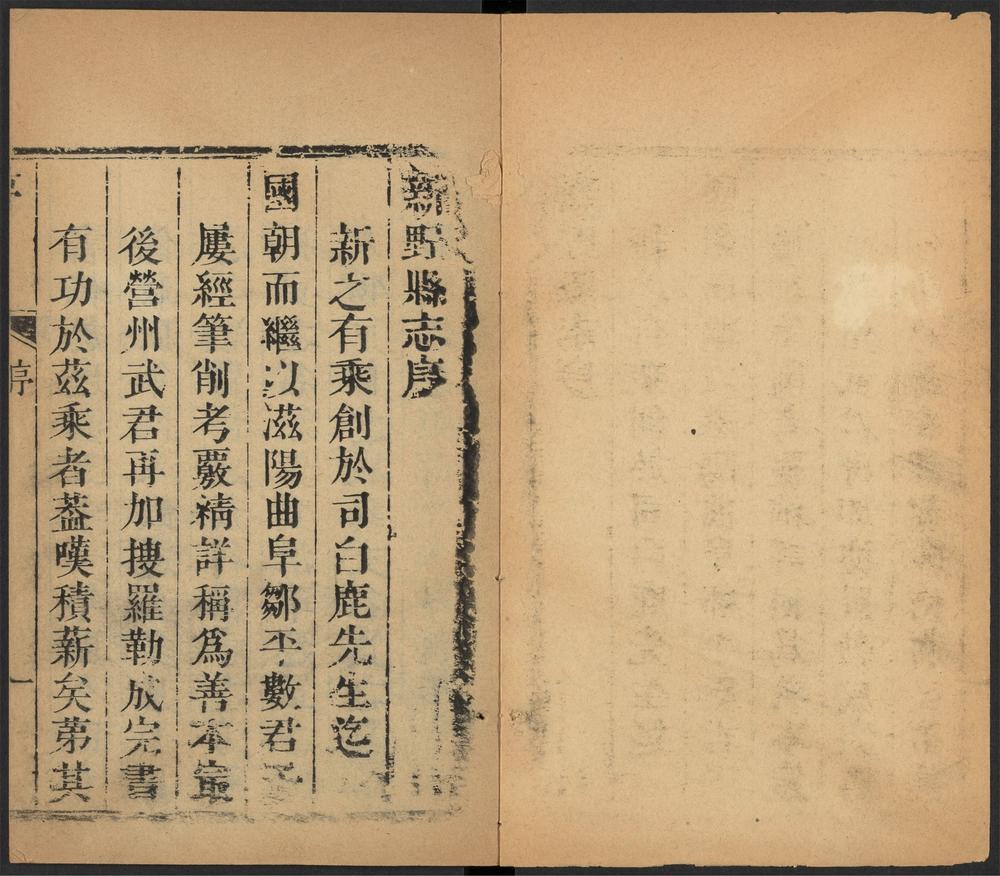 新野縣志序
新之有乘創於司白鹿先生迄
國朝而繼以滋陽曲阜鄒平數君子
屢經筆削考覈精詳稱為善本最
後營州武君再加搜羅勒成完書
有功於茲乘者葢嘆積薪矣苐其
序
一